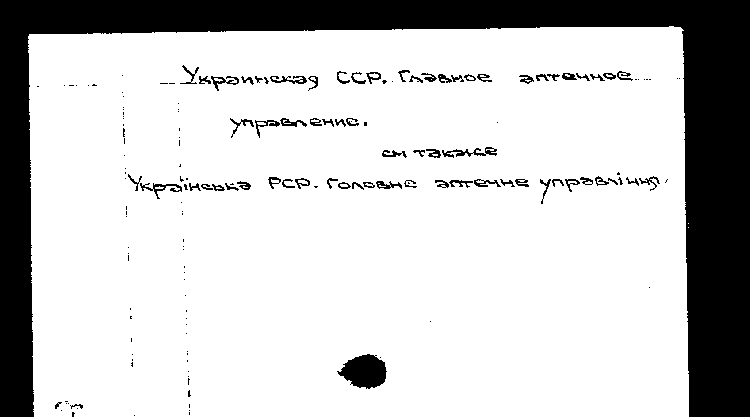 Украинская ССР. Главное аптечное
управление.
см также
Українська РСР. Головне аптечне управління.